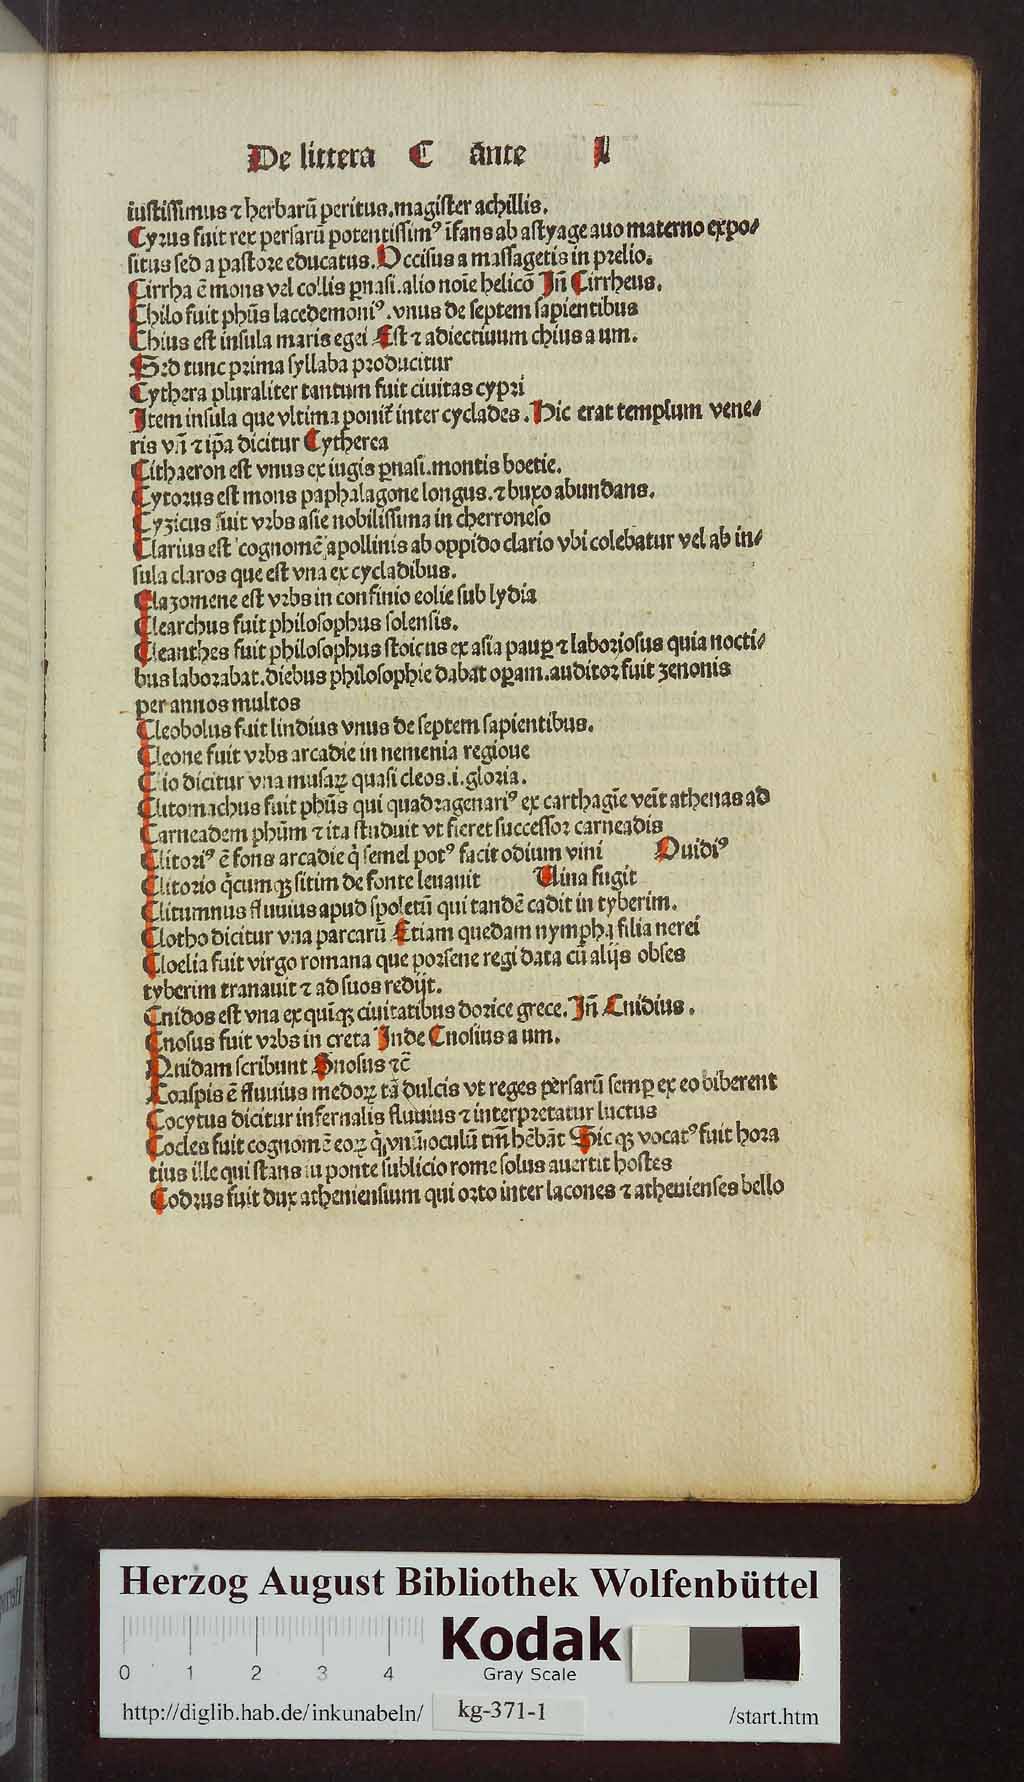 De littera C ānte L
iustissimus ⁊ herbarū peritus.magister achillis.
Cyrus fuit rex persarū potentissimꝰ īfans ab astyage auo materno expo⸗
situs sed a pastore educatus.Occisus a massagetis in prelio.
Cirrha ē mons vel collis ꝑnasi.alio noīe helicō Iñ Cirrheus.
Chilo fuit phūs lacedemoniꝰ.vnus de septem sapientibus
Chius est insula maris egei Est ⁊ adiectiuum chius a um.
Sed tunc prima syllaba producitur
Cythera pluraliter tantum fuit ciuitas cypri
Item insula que vltima ponit̄ inter cyclades.Hic erat templum vene⸗
ris vñ ⁊ ip̄a dicitur Cytherea
Cithaeron est vnus ex iugis ꝑnasi.montis boetie.
Cytorus est mons paphalagone longus.⁊ buxo abundans.
Cyzicus fuit vrbs asie nobilissima in cherroneso
Clarius est cognomē apollinis ab oppido clario vbi colebatur vel ab in⸗
sula claros que est vna ex cycladibus.
Clazomene est vrbs in confinio eolie sub lydia
Clearchus fuit philosophus solensis.
Cleanthes fuit philosophus stoicus ex asia pauꝑ ⁊ laboriosus quia nocti⸗
bus laborabat.diebus philosophie dabat oꝑam.auditor fuit zenonis
per annos multos
Cleobolus fuit lindius vnus de septem sapientibus.
Cleone fuit vrbs arcadie in nemenia regioue
Clio dicitur vna musaꝝ quasi cleos.i.gloria.
Clitomachus fuit phūs qui quadragenariꝰ ex carthagīe veīt athenas ad
Carneadem phūm ⁊ ita studuit vt fieret successor carneadis
Clitoriꝰ ē fons arcadie q̇ semel potꝰ facit odium vini Ouidiꝰ
Clitorio q̇cumqꝫ sitim de fonte leuauit Uina fugit
Clitumnus fluuius apud spoletū qui tandē cadit in tyberim.
Clotho dicitur vna parcarū Etiam quedam nympha filia nerei
Cloelia fuit virgo romana que porsene regi data cū alijs obses
tyberim tranauit ⁊ ad suos redijt.
Cnidos est vna ex quīqꝫ ciuitatibus dorice grece.Iñ Cnidius.
Cnosus fuit vrbs in creta Inde Cnosius a um.
Quidam scribunt Gnosus ⁊c̄
Coaspis ē fluuius medoꝝ tā dulcis vt reges persarū semꝑ ex eo biberent
Cocytus dicitur infernalis fluuius ⁊ interpretatur luctus
Cocles fuit cognomē eoꝝ q̇ vnū oculū tm̄ hēbāt Sic qꝫ vocatꝰ fuit hora
tius ille qui stans iu ponte sublicio rome solus auertit hostes
Codrus fuit dux atheniensium qui orto inter lacones ⁊ atheuienses bello
Herzog August Bibliothek Wolfenbüttel
Kodak
Gray Scale
0 1 2 3 4
http://diglib.hab.de/inkunabeln/ kg-371-1 /start.htm